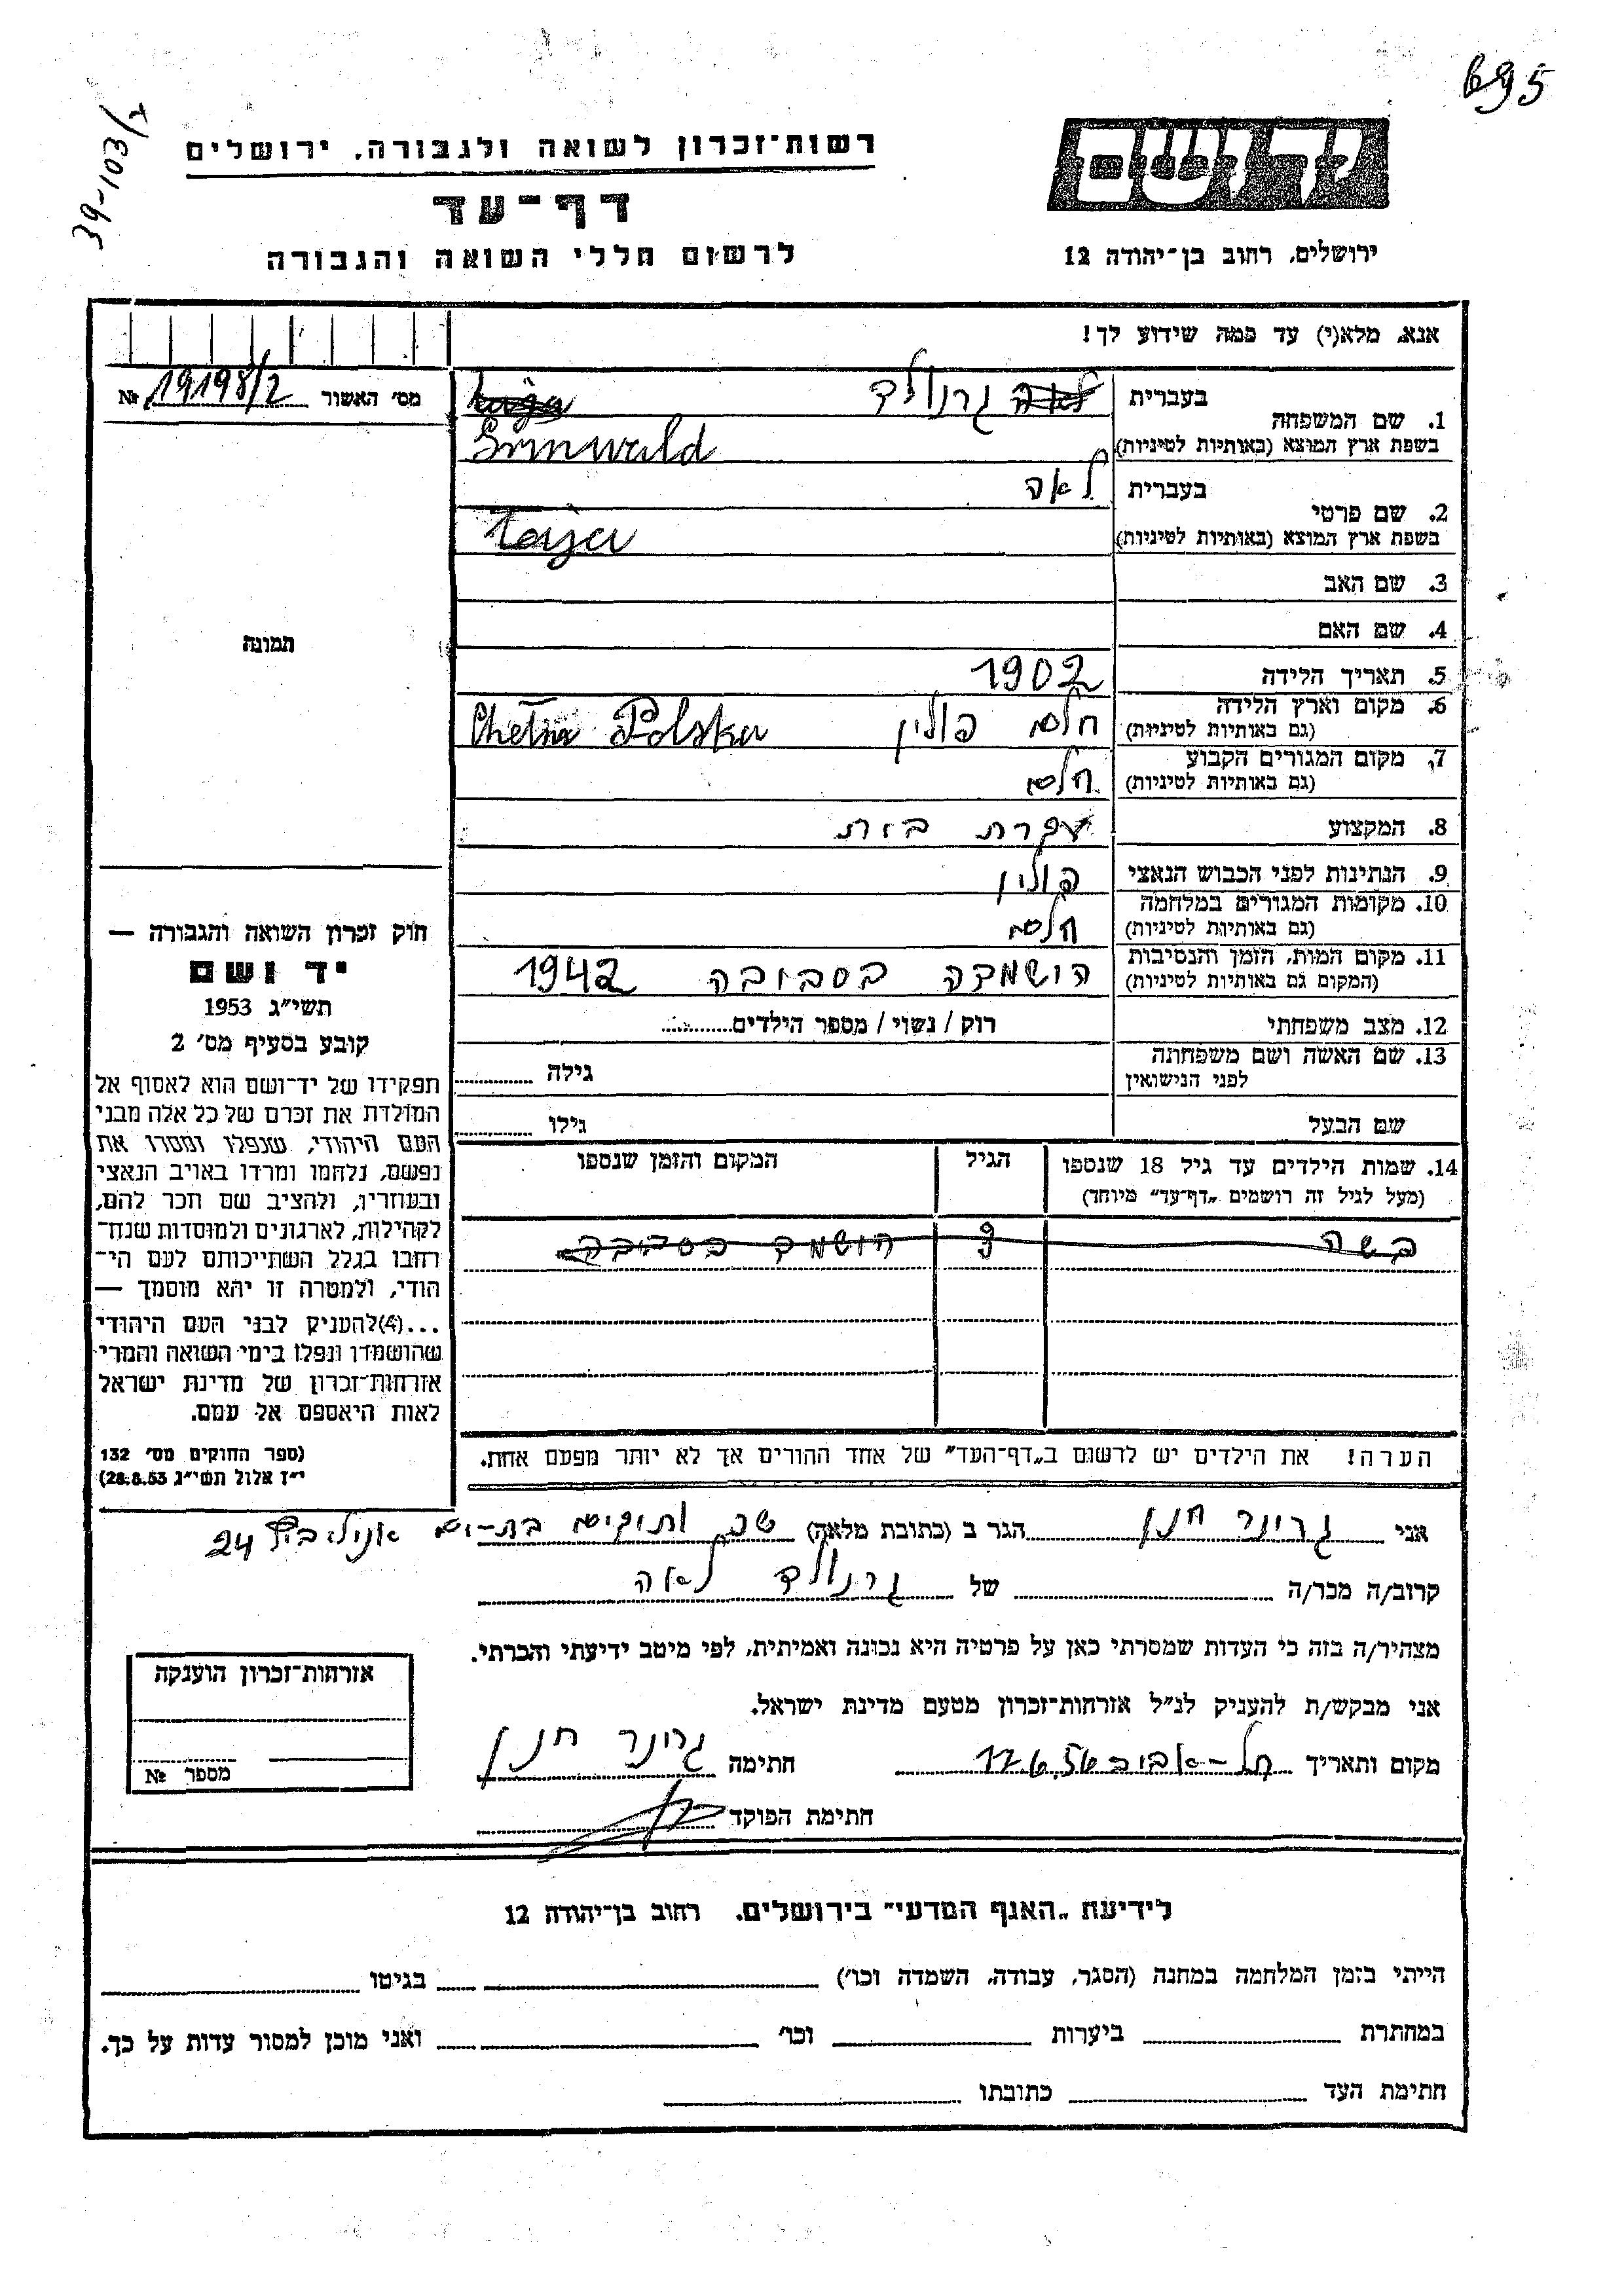 695
39-103/ד
יד ושם
רשות־זכרון לשואה ולגבורה, ירושלים
דף־עד
לרשום חללי השואה והגבורה
ירושלים, רחוב בן־יהודה 12
אנא, מלא(י) עד כמה שידוע לך!
מס׳ האשור 19198/2 №
1. שם המשפחה
בעברית לאה גרנולד
בשפת ארץ המוצא (באותיות לטיניות)
Grinwald
2. שם פרטי
בעברית לאה
בשפת ארץ המוצא (באותיות לטיניות)
Laja
3. שם האב
4. שם האם
תמונה
5. תאריך הלידה 1902
6. מקום וארץ הלידה חלם פולין Chełm Polska
(גם באותיות לטיניות)
7. מקום המגורים הקבוע חלם
(גם באותיות לטיניות)
8. המקצוע עקרת בית
9. הנתינות לפני הכבוש הנאצי פולין
10. מקומות המגורים במלחמה חלם
(גם באותיות לטיניות)
11. מקום המות, הזמן והנסיבות הושמדה בסביבה 1942
(המקום גם באותיות לטיניות)
12. מצב משפחתי רוק / נשוי / מספר הילדים
13. שם האשה ושם משפחתה
לפני הנישואין
גילה
שם הבעל
גילו
14. שמות הילדים עד גיל 18 שנספו
(מעל לגיל זה רושמים „דף־עד” מיוחד)
הגיל
המקום והזמן שנספו
בשה הושמד בסביבה
הערה! את הילדים יש לרשום ב„דף־העד” של אחד ההורים אך לא יותר מפעם אחת.
חוק זכרון השואה והגבורה —
יד ושם
תשי״ג 1953
קובע בסעיף מס׳ 2
תפקידו של יד־ושם הוא לאסוף אל
המולדת את זכרם של כל אלה מבני
העם היהודי, שנפלו ומסרו את
נפשם, נלחמו ומרדו באויב הנאצי
ובעוזריו, ולהציב שם וזכר להם,
לקהילות, לארגונים ולמוסדות שנח־
רחבו בגלל השתייכותם לעם הי־
הודי, ולמטרה זו יהא מוסמך —
...(4)להעניק לבני העם היהודי
שהושמדו ונפלו בימי השואה והמרי
אזרחות־זכרון של מדינת ישראל
לאות היאספם אל עמם.
(ספר החוקים מס׳ 132
י״ז אלול תשי״ג 28.8.53)
אני גרינר חנן הגר ב (כתובת מלאה) שכ ותיקים בת-ים 24
קרוב/ה מכר/ה של גרנולד לאה
מצהיר/ה בזה כי העדות שמסרתי כאן על פרטיה היא נכונה ואמיתית, לפי מיטב ידיעתי והכרתי.
אני מבקש/ת להעניק לנ״ל אזרחות־זכרון מטעם מדינת ישראל.
מקום ותאריך תל-אביב 17.6.56 חתימה גרינר חנן
חתימת הפוקד
אזרחות־זכרון הוענקה
מספר №
לידיעת „האגף המדעי” בירושלים, רחוב בן־יהודה 12
הייתי בזמן המלחמה במחנה (הסגר, עבודה, השמדה וכו׳) בגיטו
במחתרת ביערות וכו׳ ואני מוכן למסור עדות על כך.
חתימת העד כתובתו